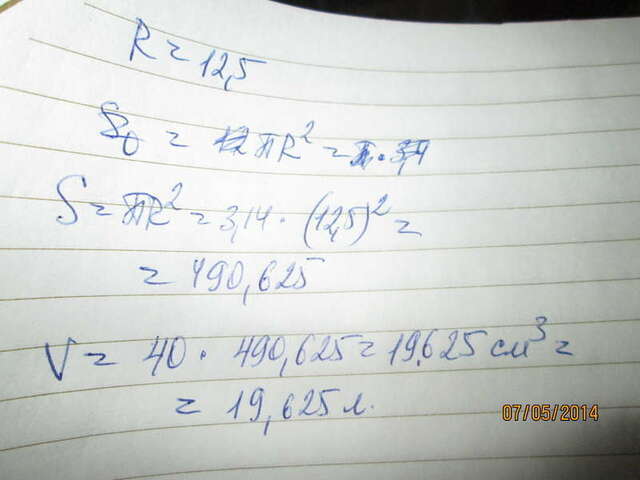 R = 12,5
S = πR² = π · 3,14
S = πR² = 3,14 · (12,5)² =
= 490,625
V = 40 · 490,625 = 19625 см³ =
= 19,625 л.
07/05/2014